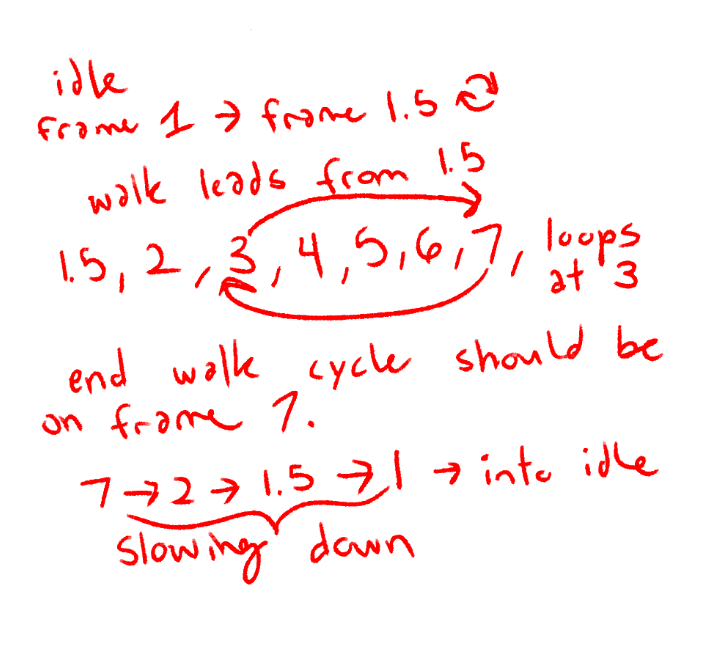 idle
frame 1 → frame 1.5 🔁
walk leads from 1.5
1.5, 2, 3, 4, 5, 6, 7, loops at 3
end walk cycle should be
on frame 7.
7 → 2 → 1.5 → 1 → into idle
slowing down